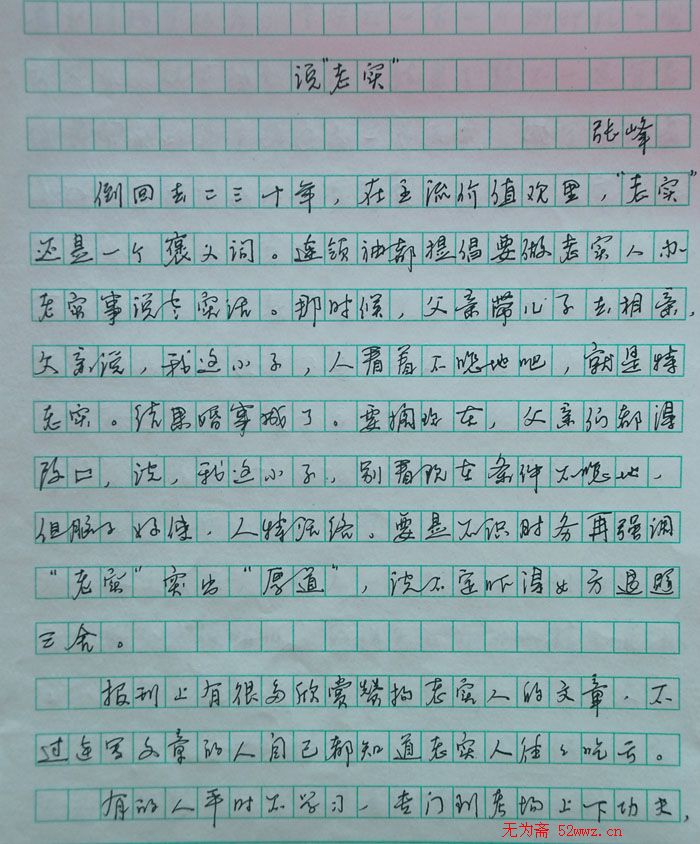 说"老实"
张峰
倒回去二三十年，在主流价值观里，"老实"
还是一个褒义词。连领袖都提倡要做老实人办
老实事说老实话。那时候，父亲带儿子去相亲，
父亲说，我这小子，人看着不咋地吧，就是特
老实。结果婚事成了。要搁现在，父亲们都得
改口，说，我这小子，别看现在条件不咋地，
但脑子好使，人特活络。要是不识时务再强调
"老实"突出"厚道"，说不定吓得女方退避
三舍。
报刊上有很多欣赏赞扬老实人的文章，不
过连写文章的人自己都知道老实人往往吃亏。
有的人平时不学习，专门到考场上下功夫，
无为斋 52wwz.cn